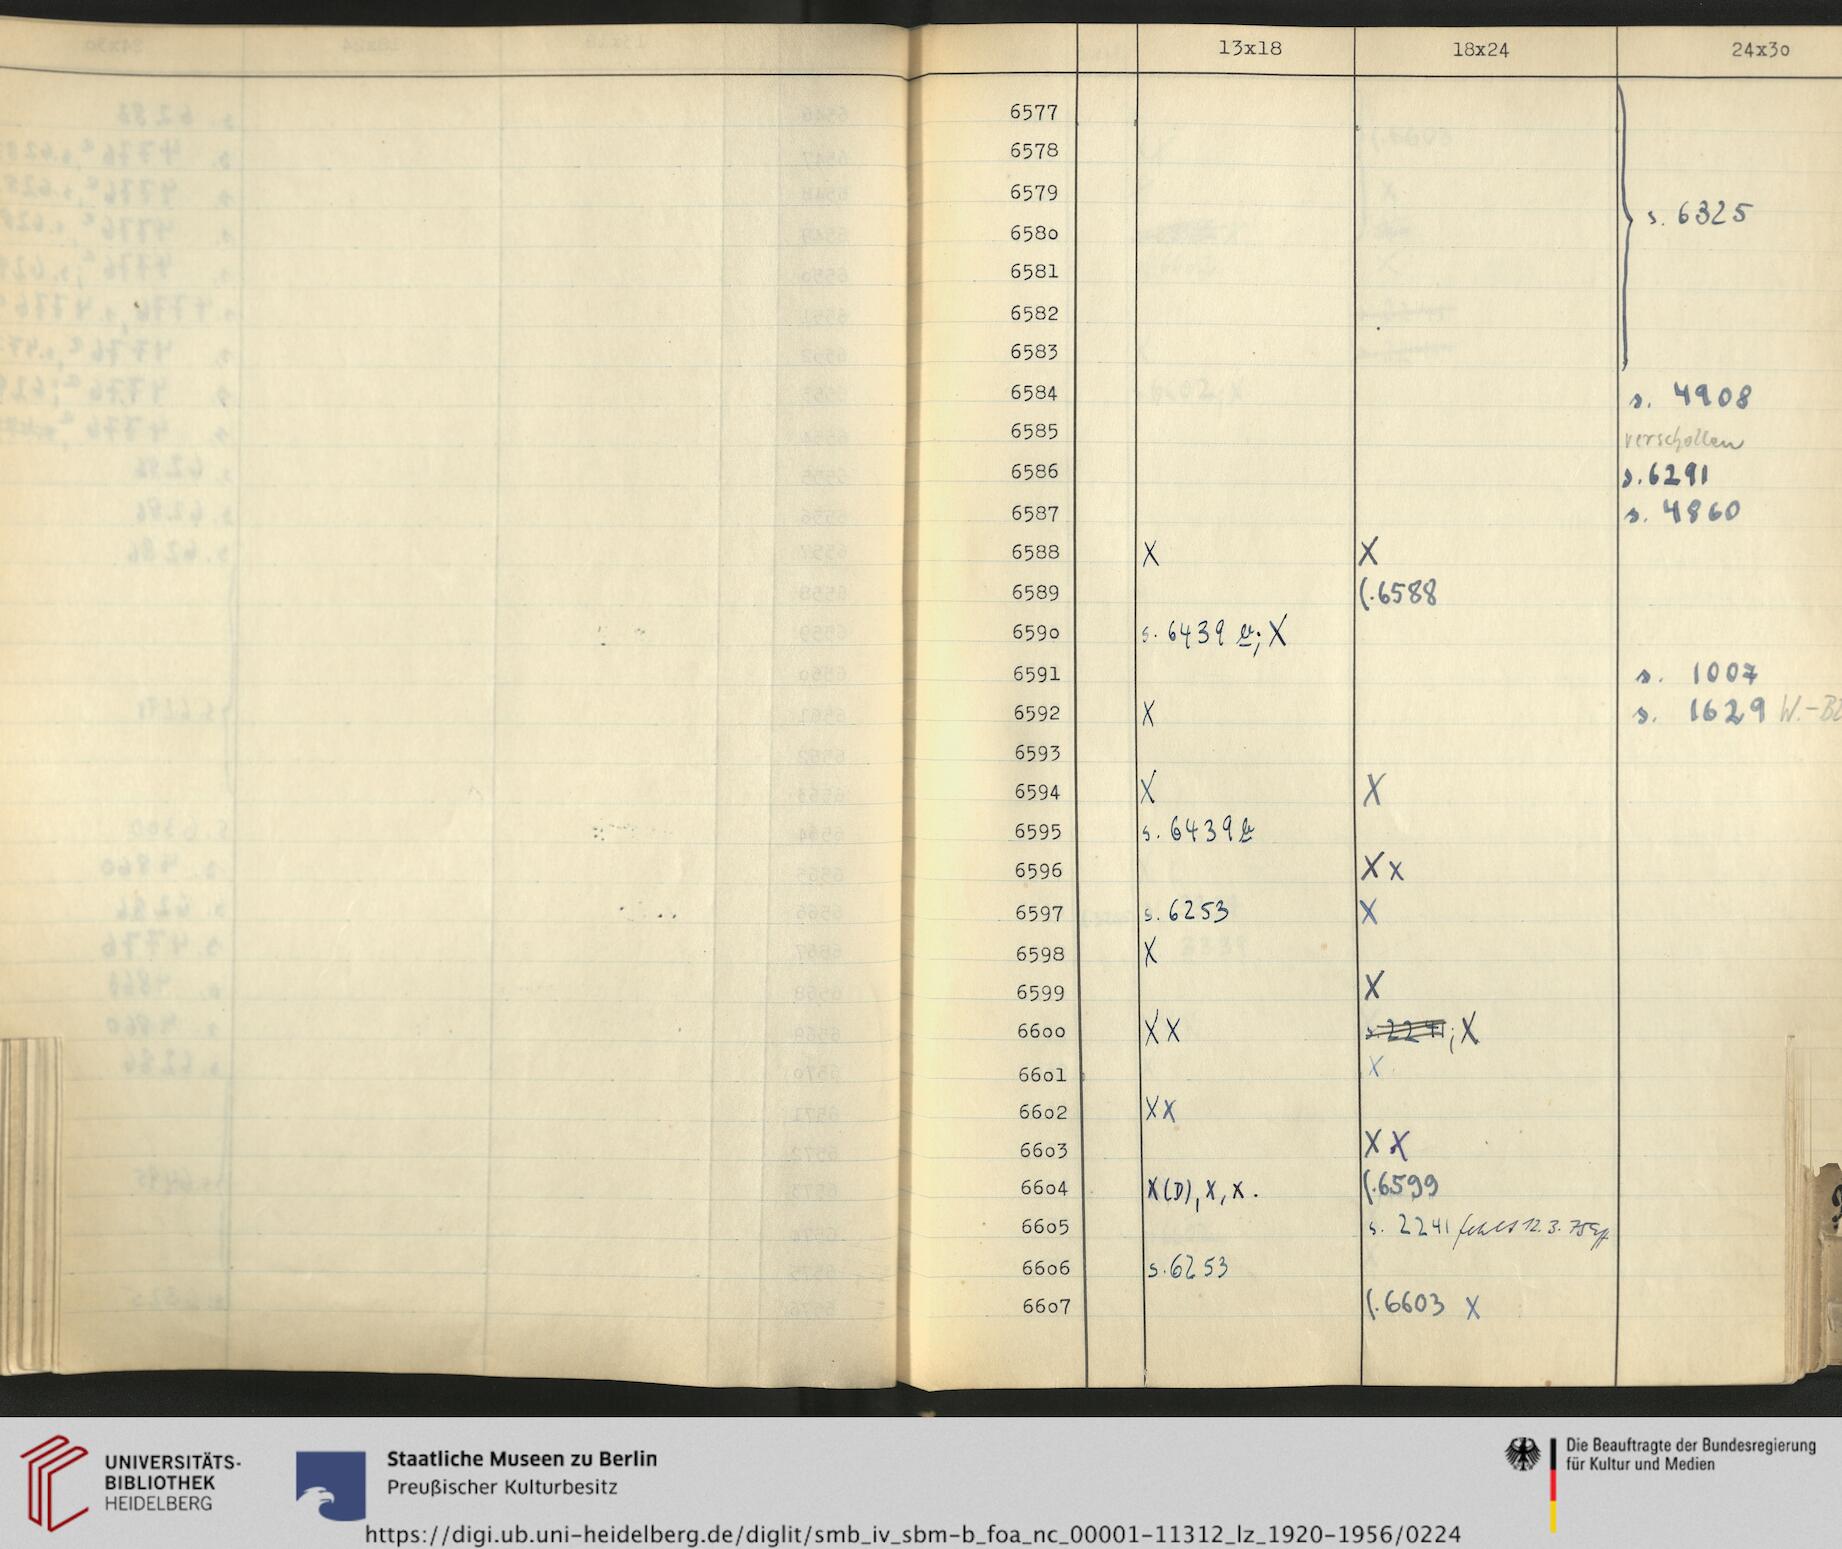 13x18 18x24 24x3o
6577
6578
6579
658o s. 6325
6581
6582
6583
6584 s. 4908
6585 verschollen
6586 s. 6291
6587 s. 4860
6588 X X
6589 (.6588
659o s. 6439 a; X
6591 s. 1007
6592 X s. 1629 W.-
6593
6594 X X
6595 s. 6439 b
6596 X x
6597 s. 6253 X
6598 X
6599 X
66oo X X s. 2241; X
66o1 X
66o2 X X
66o3 X X
66o4 X(D), X, X. (.6599
66o5 s. 2241 fehlt 12.3.75
66o6 s. 6253
66o7 (.6603 X
UNIVERSITÄTS-
BIBLIOTHEK
HEIDELBERG
Staatliche Museen zu Berlin
Preußischer Kulturbesitz
Die Beauftragte der Bundesregierung
für Kultur und Medien
https://digi.ub.uni-heidelberg.de/diglit/smb_iv_sbm-b_foa_nc_00001-11312_lz_1920-1956/0224